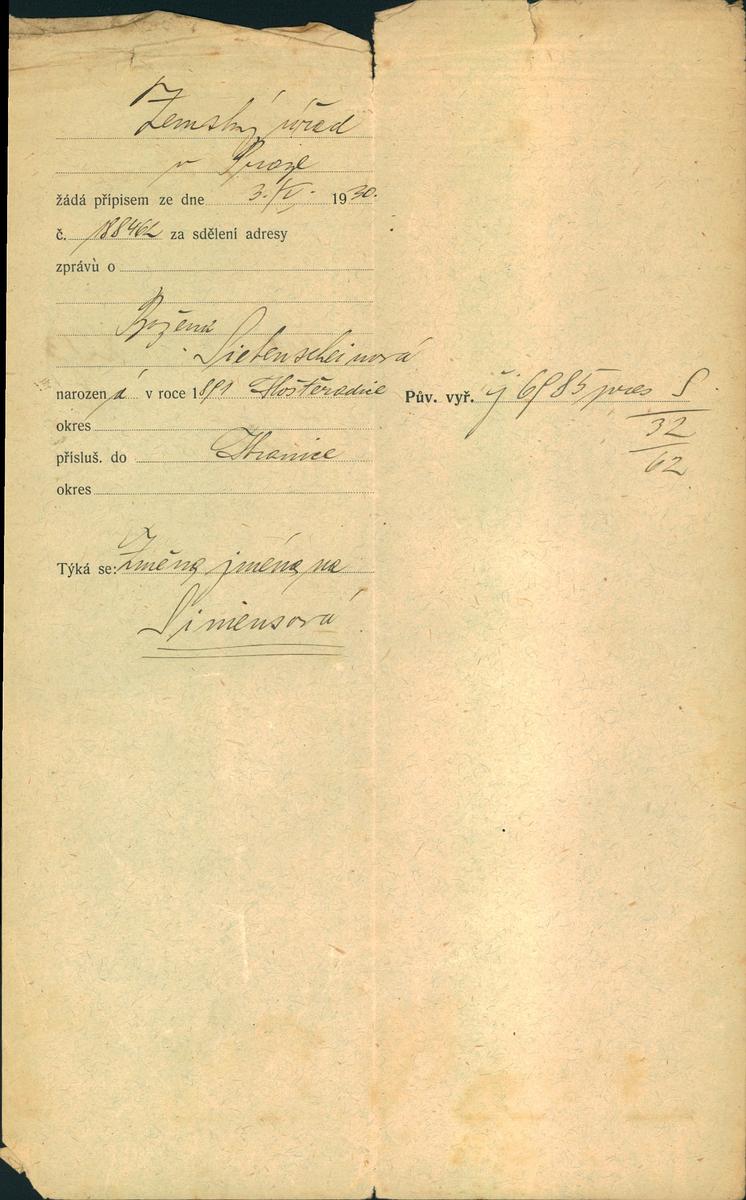 Zemský úřad
v Praze
žádá přípisem ze dne 3./IV. 1930.
č. 188462 za sdělení adresy
zprávù o
Božena
Siebenscheinová
narozená v roce 1891 Hostěradice
okres
přísluš. do Hranice
okres
Týká se: Změna jména na
Simensová
Pův. vyř. 6985 pres S
32
62